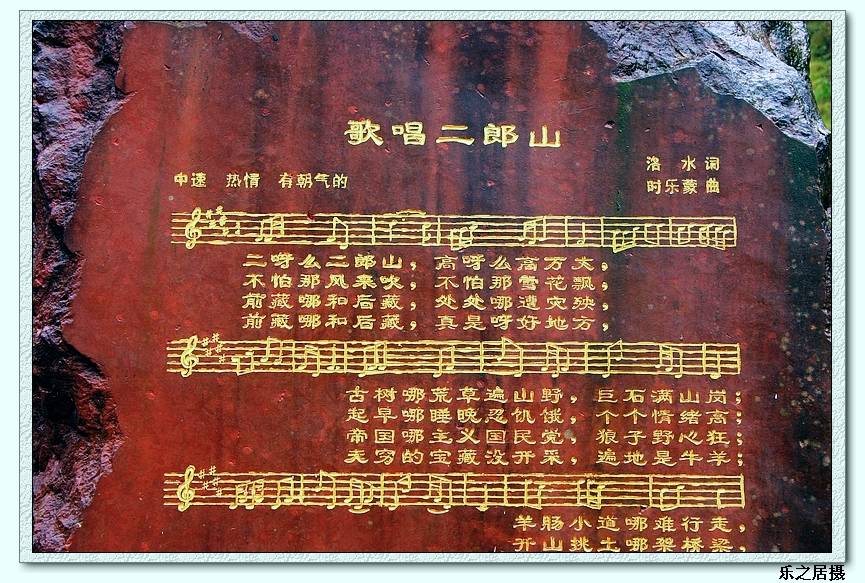 歌唱二郎山
洛水词
中速 热情 有朝气的
时乐蒙 曲
二呀么二郎山，高呀么高万丈，
不怕那风来吹，不怕那雪花飘，
前藏哪和后藏，处处哪遭灾殃，
前藏哪和后藏，真是呀好地方，
古树哪荒草遍山野，巨石满山岗；
起早哪睡晚忍饥饿，个个情绪高；
帝国哪主义国民党，狼子野心狂；
无穷的宝藏没开采，遍地是牛羊；
羊肠小道哪难行走，
开山挑土哪架桥梁，
乐之居摄